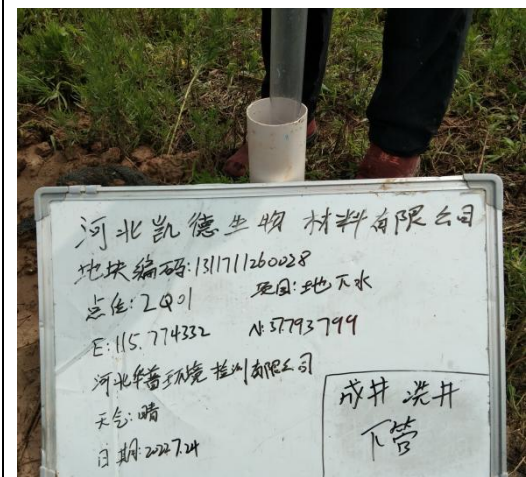 河北凯德生物材料有限公司
地块编码:1311711260028
点位:2Q01 项目:地下水
E:115.774332 N:37.793799
河北华普环境检测有限公司
天气:晴
日期:2022.7.24
成井 洗井
下管